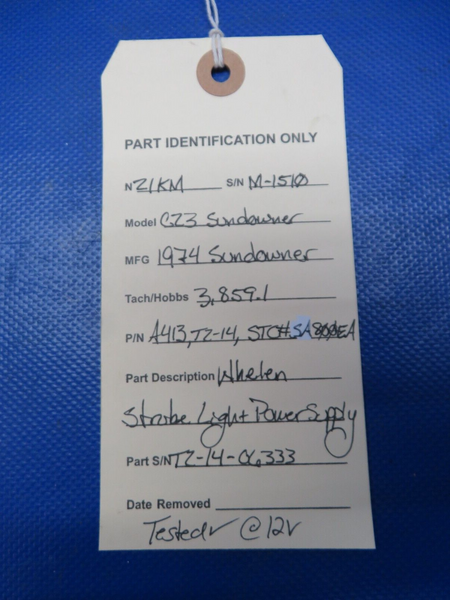 PART IDENTIFICATION ONLY
N 21KM S/N M-1510
Model C23 Sundowner
MFG 1974 Sundowner
Tach/Hobbs 3,859.1
P/N A413, T2-14, STC#
Part Description Whelen
Strobe Light Power Supply
Part S/N
Date Removed
Tested @ 12V